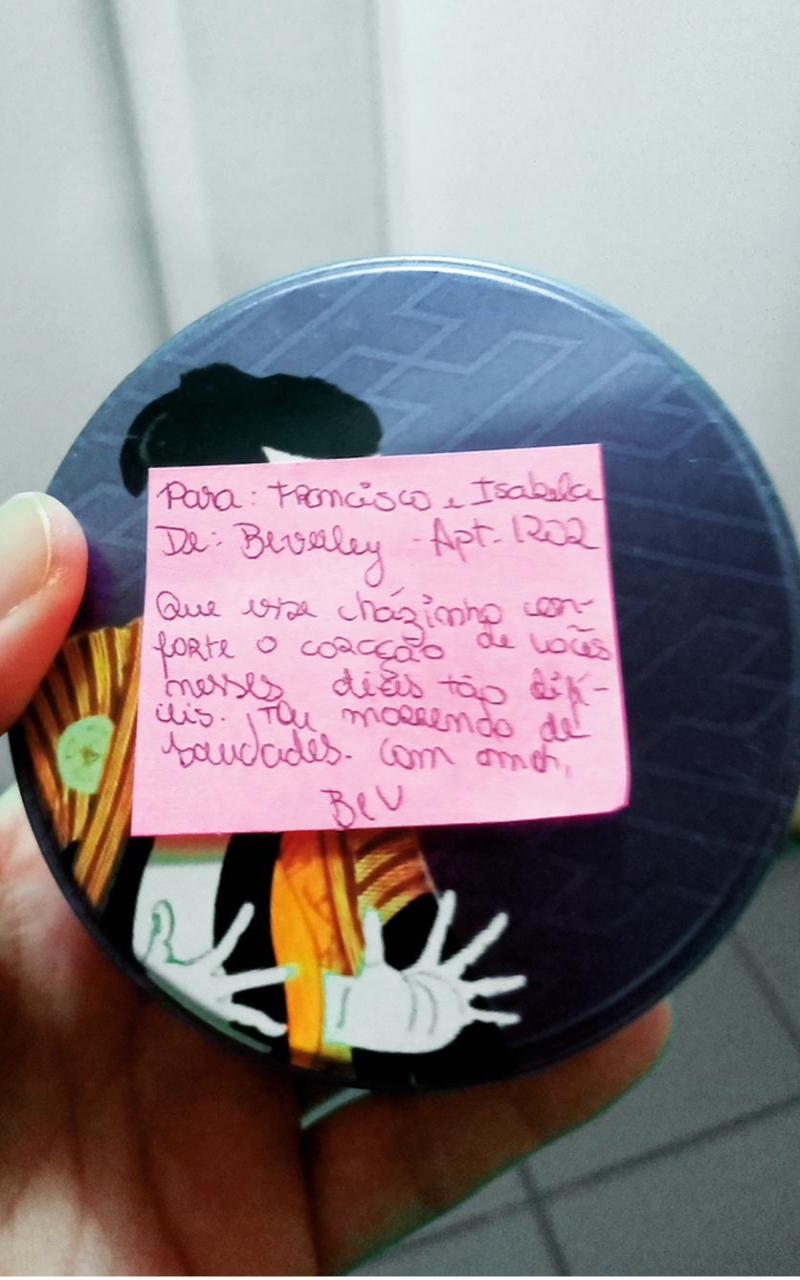 Para: Francisco e Isabela
De: Beverley - Apt. 1202
Que esse cházinho con-
forte o coração de vocês
nesses dias tão difí-
ceis. Tou morrendo de
saudades. Com amor,
Bev